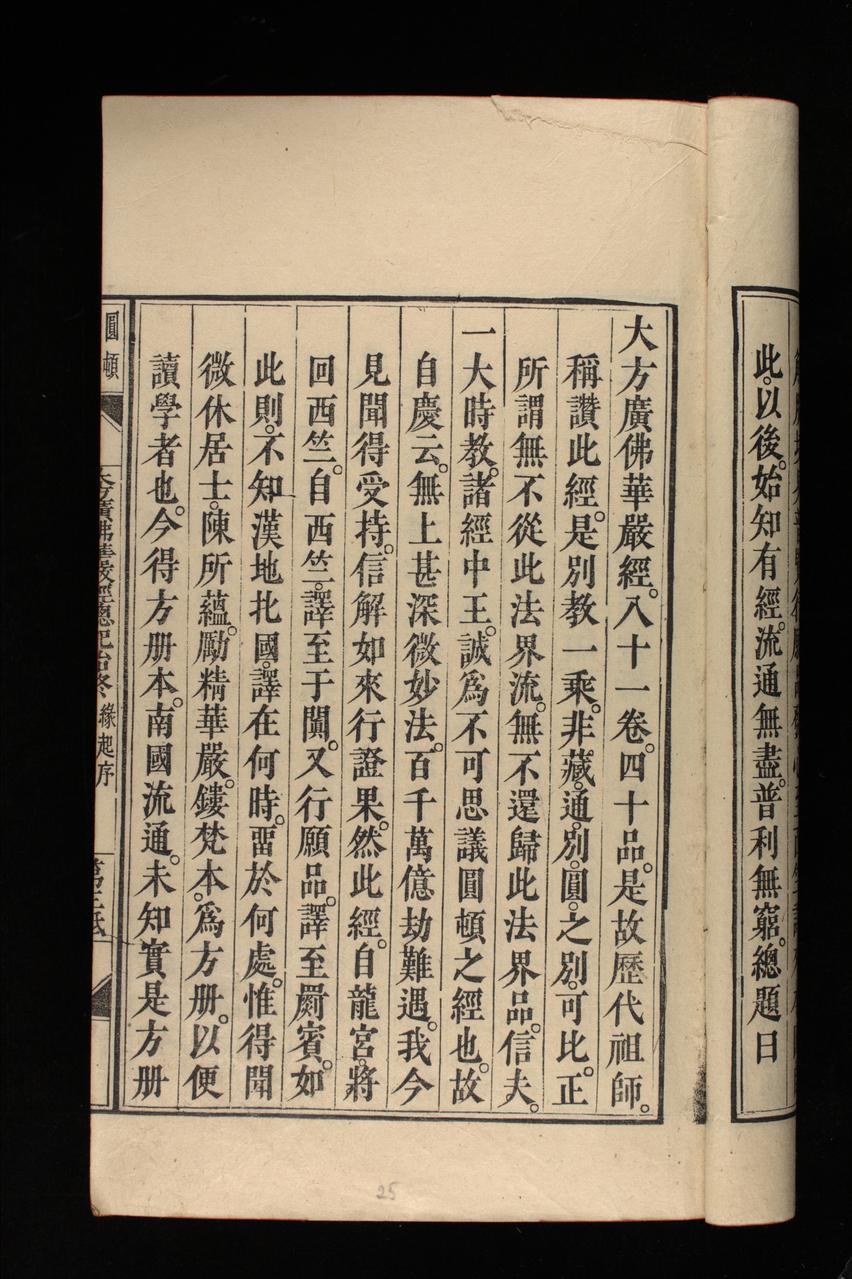 此。以後。始知有經。流通無盡。普利無窮。總題曰
大方廣佛華嚴經。八十一卷。四十品。是故歷代祖師。
稱讚此經。是別教一乘。非藏。通。別。圓。之別。可比。正
所謂無不從此法界流。無不還歸此法界品。信夫。
一大時教。諸經中王。誠爲不可思議圓頓之經也。故
自慶云。無上甚深微妙法。百千萬億劫難遇。我今
見聞得受持。信解如來行證果。然此經。自龍宮。將
回西竺。自西竺。譯至于闐。又行願品。譯至罽賓。如
此則。不知漢地北國。譯在何時。畱於何處。惟得聞
微休居士。陳所蘊。勵精華嚴。鏤梵本。爲方册。以便
讀學者也。今得方册本。南國流通。未知實是方册
圓頓
大方廣佛華嚴經總 緣起序
25